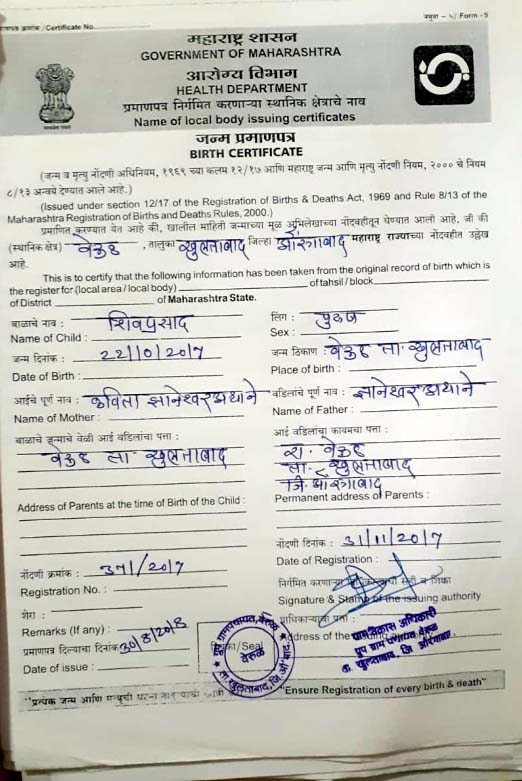 प्रमाणपत्र क्रमांक / Certificate No.
नमुना - ५/ Form - 5
महाराष्ट्र शासन
GOVERNMENT OF MAHARASHTRA
आरोग्य विभाग
HEALTH DEPARTMENT
प्रमाणपत्र निर्गमित करणाऱ्या स्थानिक क्षेत्राचे नाव
Name of local body issuing certificates
जन्म प्रमाणपत्र
BIRTH CERTIFICATE
(जन्म व मृत्यु नोंदणी अधिनियम, १९६९ च्या कलम १२/१७ आणि महाराष्ट्र जन्म आणि मृत्यु नोंदणी नियम, २००० चे नियम
८/१३ अन्वये देण्यात आले आहे.)
(Issued under section 12/17 of the Registration of Births & Deaths Act, 1969 and Rule 8/13 of the
Maharashtra Registration of Births and Deaths Rules, 2000.)
प्रमाणित करण्यात येत आहे की, खालील माहिती जन्माच्या मूळ अभिलेखाच्या नोंदवहीतून घेण्यात आली आहे, जी की
(स्थानिक क्षेत्र) वेरुळ, तालुका खुलताबाद जिल्हा औरंगाबाद महाराष्ट्र राज्याच्या नोंदवहीत उल्लेख
आहे.
This is to certify that the following information has been taken from the original record of birth which is
the register for (local area / local body) of tahsil / block
of District of Maharashtra State.
बाळाचे नाव : शिवप्रसाद
लिंग : पुरुष
Name of Child :
Sex :
जन्म दिनांक :
जन्म ठिकाण : वेरुळ ता. खुलताबाद
Date of Birth :
Place of birth :
आईचे पूर्ण नाव : कविता ज्ञानेश्वर
वडिलांचे पूर्ण नाव : ज्ञानेश्वर
Name of Mother :
Name of Father :
बाळाचे जन्माचे वेळी आई वडिलांचा पत्ता :
आई वडिलांचा कायमचा पत्ता :
वेरुळ ता खुलताबाद
रा. वेरुळ
ता. खुलताबाद
जि. औरंगाबाद
Address of Parents at the time of Birth of the Child :
Permanent address of Parents :
नोंदणी दिनांक :
Date of Registration :
नोंदणी क्रमांक :
Registration No. :
निर्गमित करणाऱ्या
Signature & Stamp of the issuing authority
शेरा :
Remarks (If any) :
प्रमाणपत्र दिल्याचा दिनांक
Seal
Address of the
Date of issue :
ग्रुप ग्रामपंचायत, वेरुळ
वेरुळ
ता. खुलताबाद, जि. औ'बाद
ग्रामविकास अधिकारी
ग्रुप ग्राम पंचायत वेरुळ
ता. खुलताबाद, जि. औरंगाबाद
"प्रत्येक जन्म आणि मृत्यूची घटना
"Ensure Registration of every birth & death"